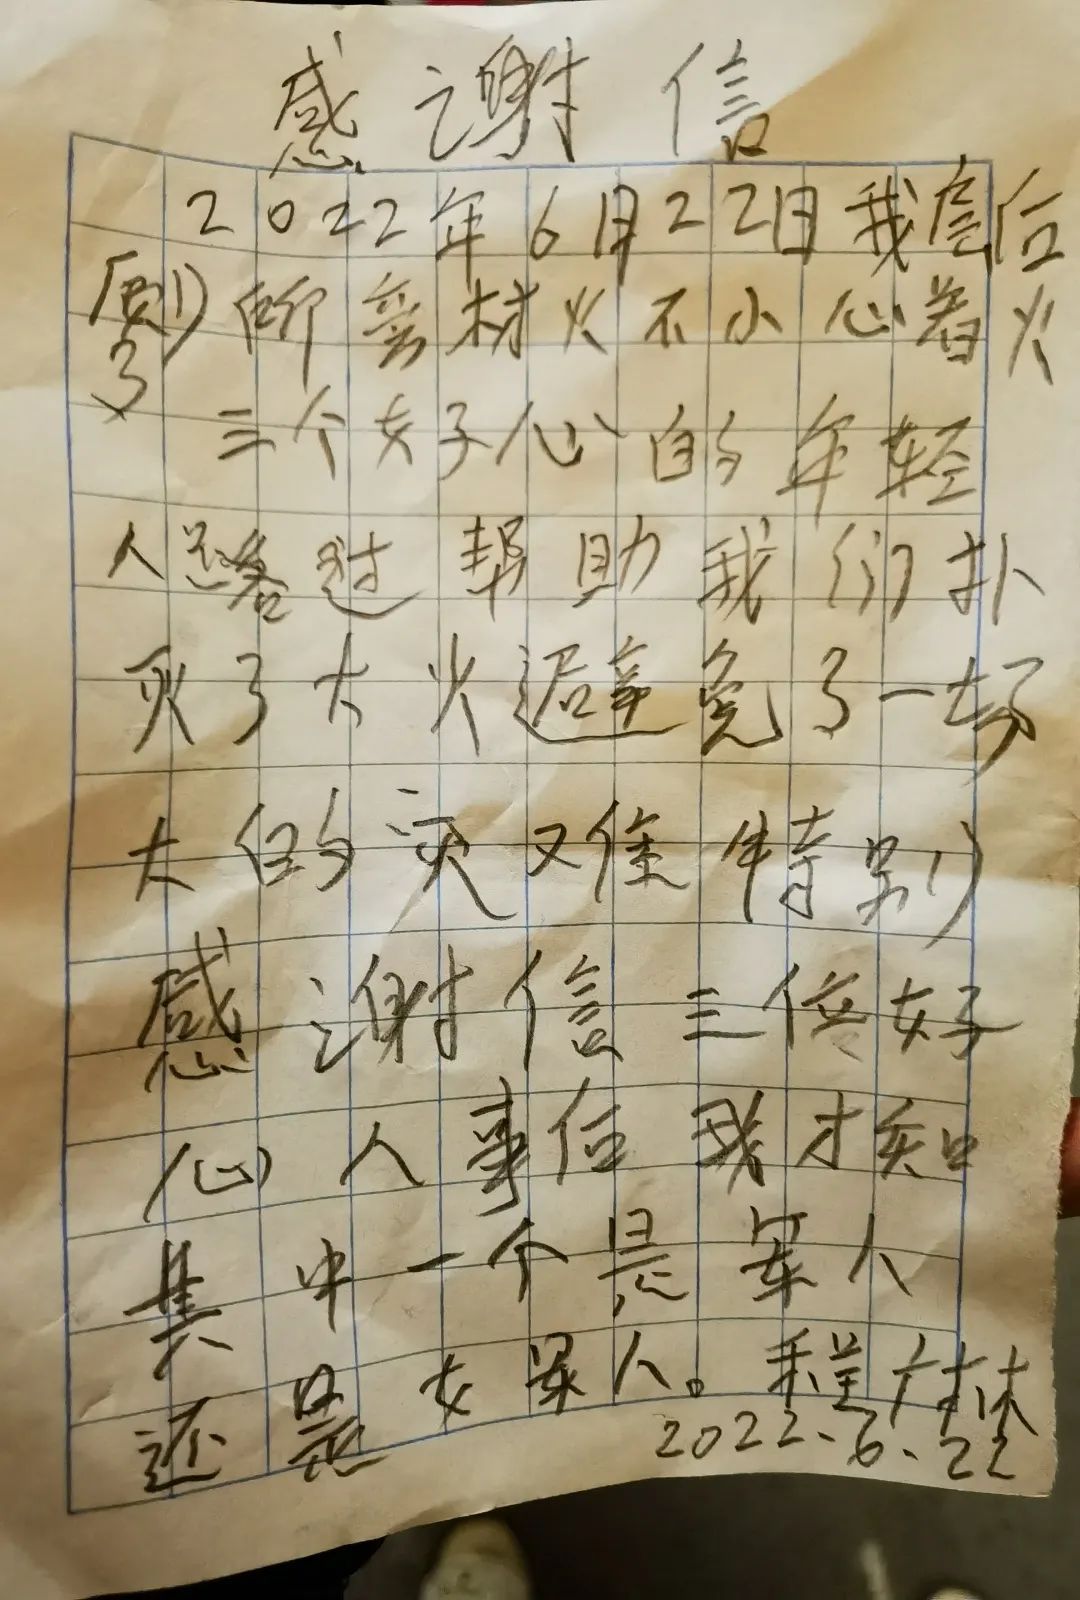 感谢信
2022年6月22日我
不小心着火
了
三个好心的年轻
人路过帮助我们扑
灭了大火避免了一场
大的灾难特别
感谢信三位好
心人事后我才知
其中一个是军人
还是女军人。程
2022.6.22